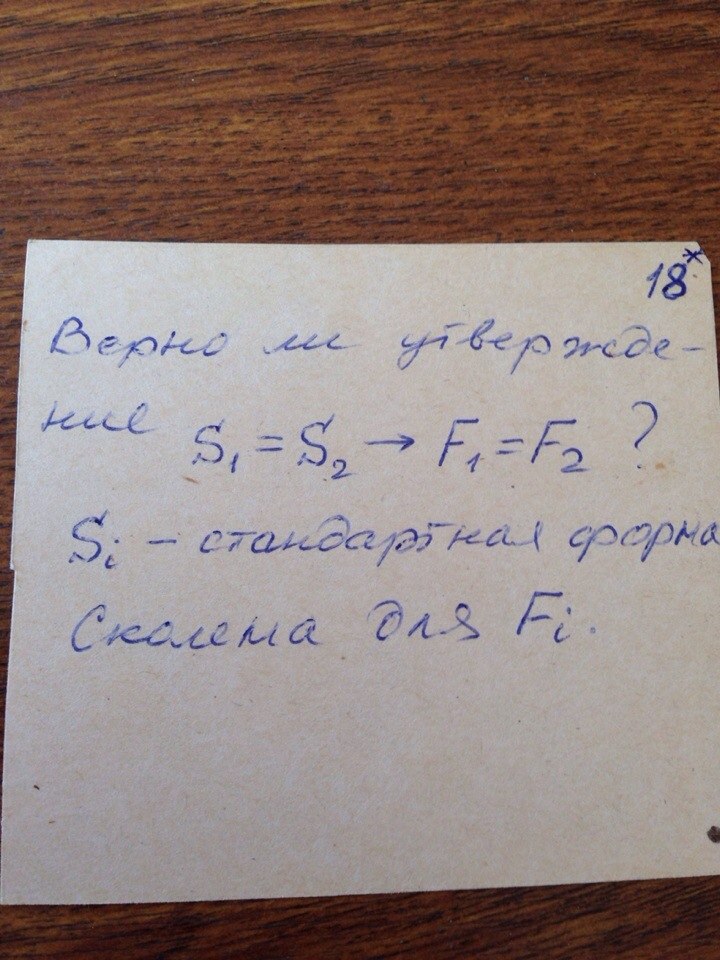 18*
Верно ли утвержде-
ние S₁ = S₂ → F₁ = F₂ ?
Sᵢ – стандартная форма
Сколема для Fᵢ.